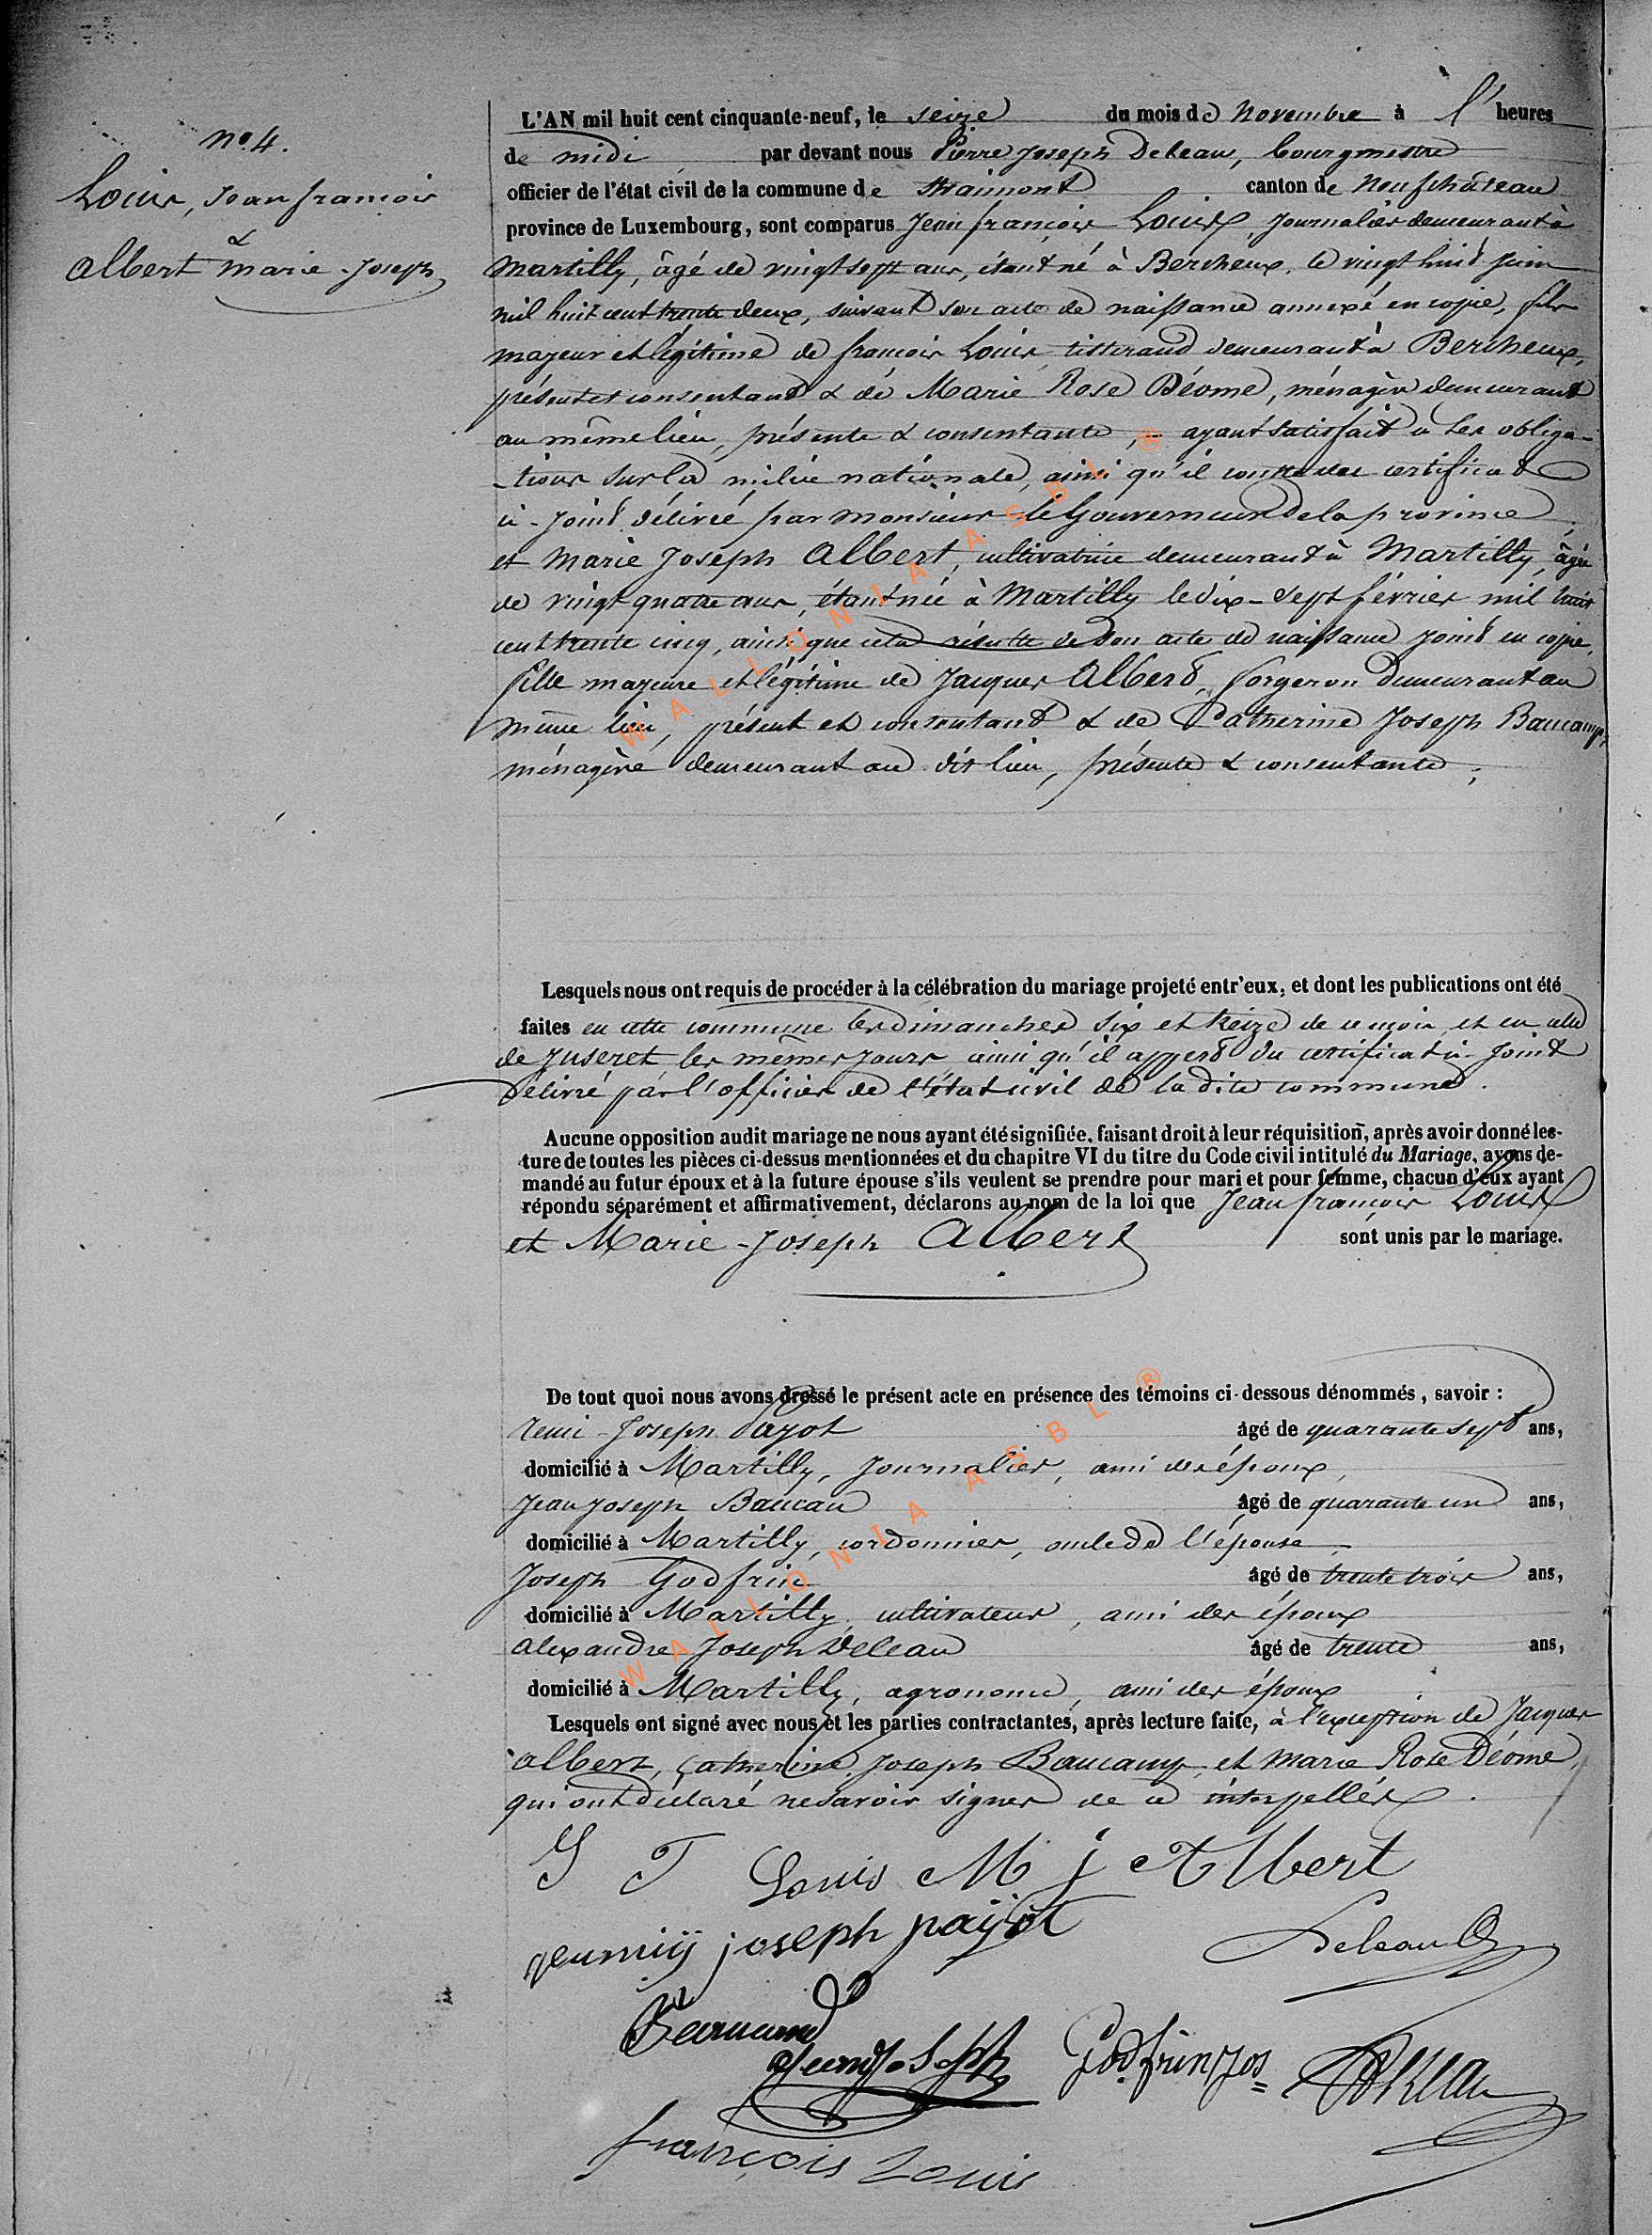 n° 4.
Louis, Jean françois
&
Albert Marie-Joseph
L'AN mil huit cent cinquante-neuf, le seize du mois de Novembre à l' heures
de midi par devant nous Pierre Joseph Deleau, bourgmestre
officier de l'état civil de la commune de Straimont canton de Neufchâteau
province de Luxembourg, sont comparus Jean françois Louis, Journalier demeurant à
Martilly, âgé de vingt sept ans, étant né à Bercheux, le vingt huit Juin
mil huit cent trente deux, suivant son acte de naissance annexé en copie, fils
majeur et légitime de françois Louis, tisserand demeurant à Bercheux,
présent et consentant & de Marie Rose Déome, ménagère demeurant
au même lieu, présente & consentante, ayant satisfait à ses obliga-
-tions sur la milice nationale, ainsi qu'il conste du certificat
ci-joint délivré par Monsieur le Gouverneur de la province,
et Marie Joseph Albert, cultivatrice demeurant à Martilly, âgée
de vingt quatre ans, étant née à Martilly le dix-sept février mil huit
cent trente cinq, ainsi que cela résulte de son acte de naissance joint en copie,
fille majeure et légitime de Jacques Albert, forgeron demeurant au
même lieu, présent et consentant & de Catherine Joseph Baucamp,
ménagère demeurant au dit lieu, présente & consentante;
Lesquels nous ont requis de procéder à la célébration du mariage projeté entr'eux, et dont les publications ont été
faites en cette commune les dimanches six et treize de ce mois et en celle
de Juseret les mêmes jours ainsi qu'il appert du certificat ci-joint
délivré par l'officier de l'état civil de la dite commune.
Aucune opposition audit mariage ne nous ayant été signifiée, faisant droit à leur réquisition, après avoir donné lec-
ture de toutes les pièces ci-dessus mentionnées et du chapitre VI du titre du Code civil intitulé du Mariage, avons de-
mandé au futur époux et à la future épouse s'ils veulent se prendre pour mari et pour femme, chacun d'eux ayant
répondu séparément et affirmativement, déclarons au nom de la loi que Jean françois Louis
et Marie-Joseph Albert sont unis par le mariage.
De tout quoi nous avons dressé le présent acte en présence des témoins ci-dessous dénommés, savoir :
Remi-Joseph Payot âgé de quarante sept ans,
domicilié à Martilly, Journalier, ami des époux,
Jean Joseph Baucau âgé de quarante un ans,
domicilié à Martilly, cordonnier, oncle de l'épouse,
Joseph Godfrin âgé de trente trois ans,
domicilié à Martilly, cultivateur, ami des époux
Alexandre Joseph Deleau âgé de trente ans,
domicilié à Martilly, agronome, ami des époux
Lesquels ont signé avec nous et les parties contractantes, après lecture faite, à l'exception de Jacques
Albert, Catherine Joseph Baucamp, et Marie Rose Déome,
qui ont déclaré ne savoir signer de ce interpellés.
J F Louis M j Albert
joseph payot
Deleau
Jean Joseph Godfrin Jos
françois Louis
WALLONIA ASBL ®
WALLONIA ASBL ®